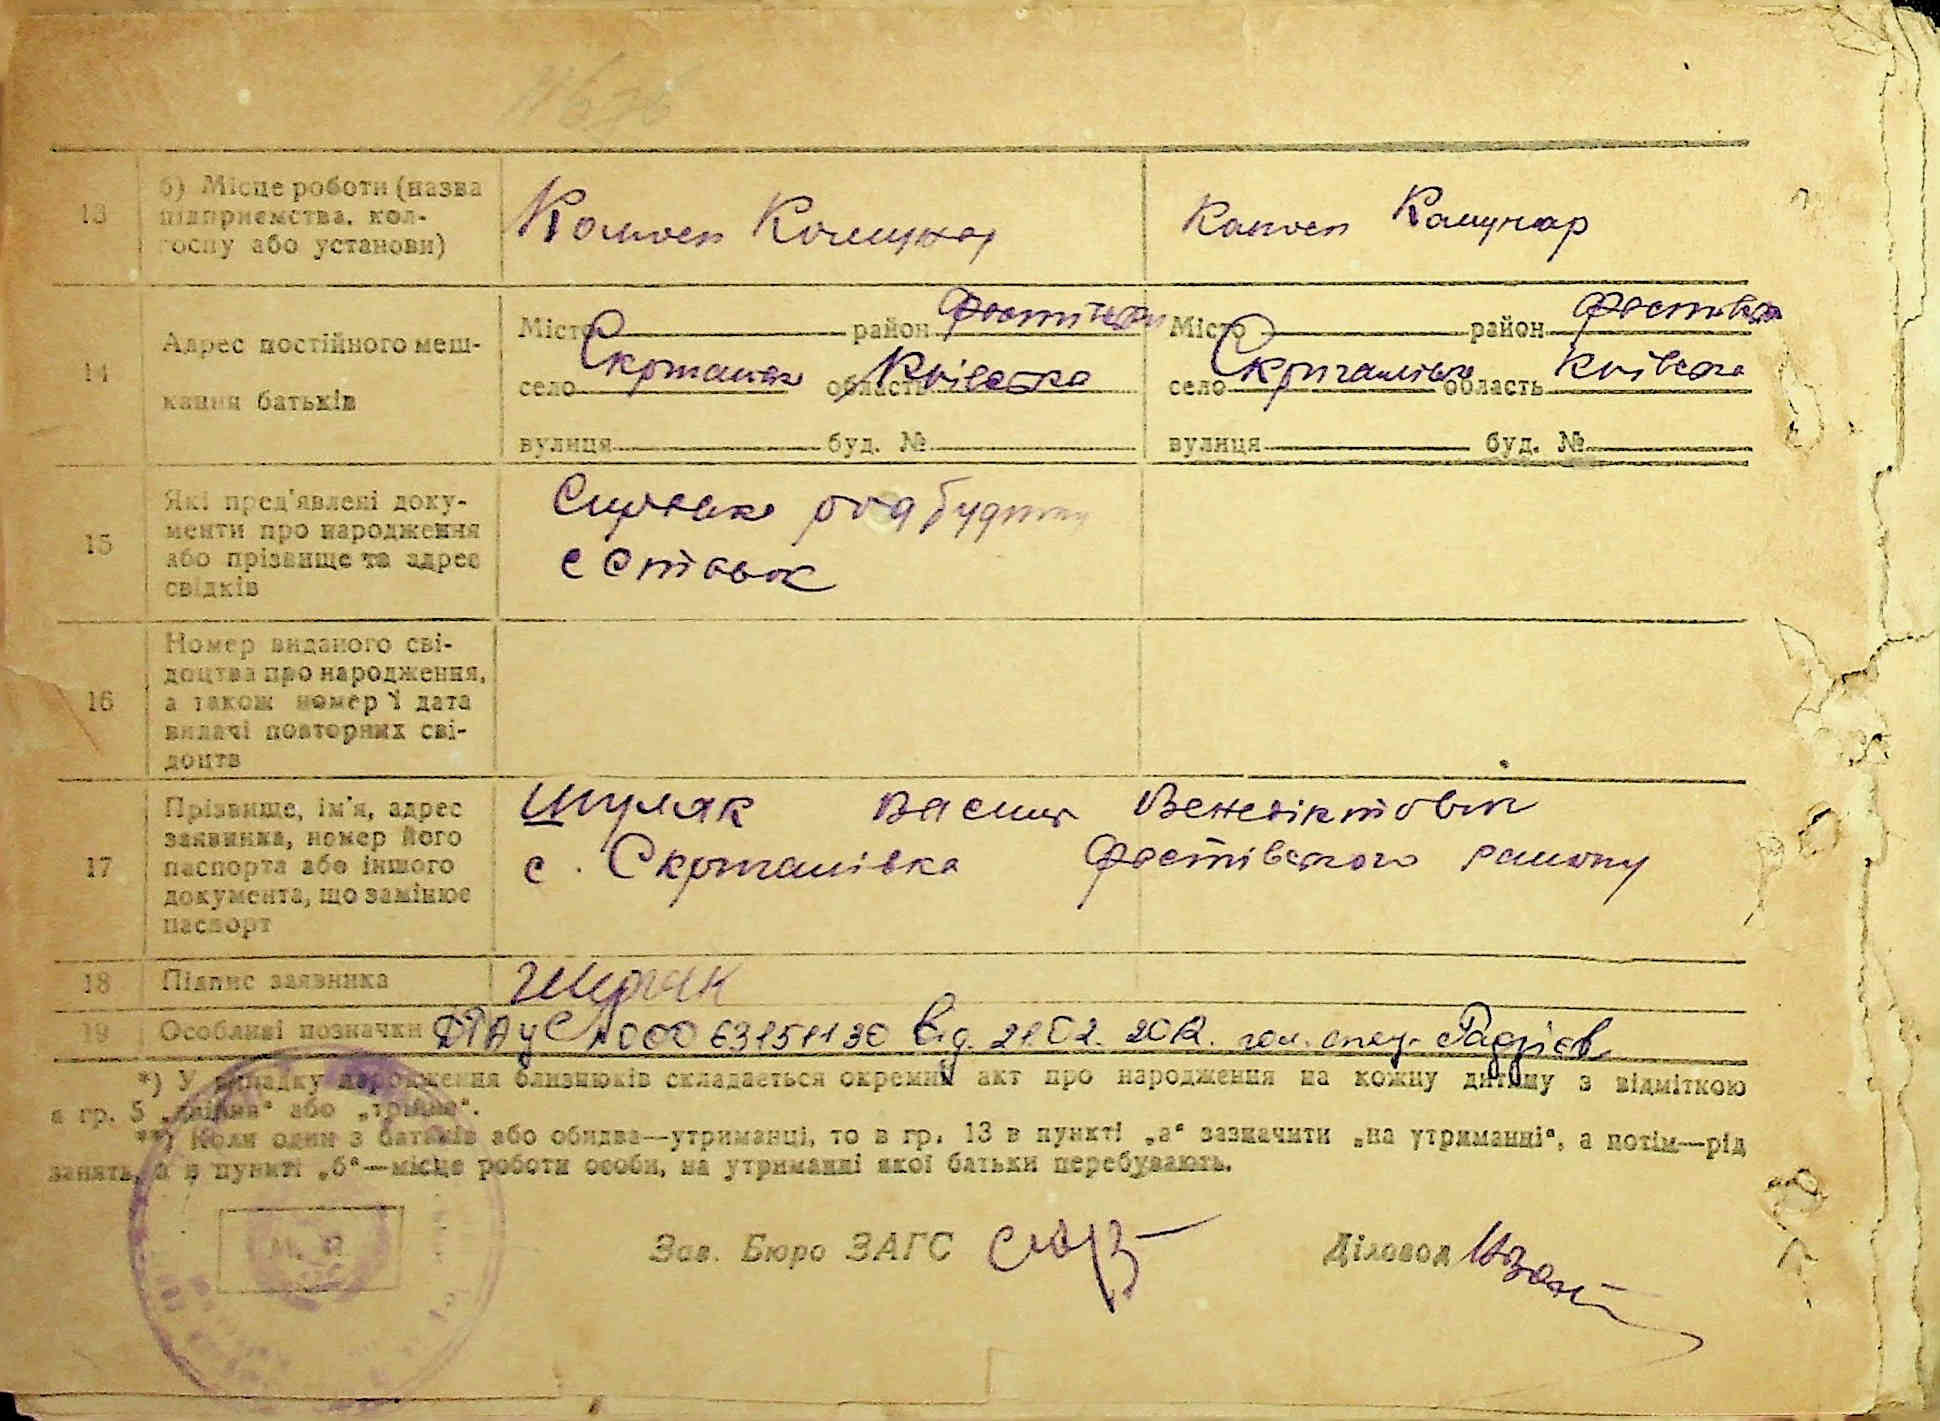 13 б) Місце роботи (назва
підприємства, кол-
госпу або установи)
Колгосп Комунар
Колгосп Комунар
14 Адрес постійного меш-
кання батьків
Місто район Фастівськ
село Скригалівк область Київська
вулиця буд. №
Місто район Фастівськ
село Скригалівк область Київська
вулиця буд. №
15 Які пред'явлені доку-
менти про народження
або прізвище та адрес
свідків
с Ставок
16 Номер виданого сві-
доцтва про народження,
а також номер і дата
видачі повторних сві-
доцтв
17 Прізвище, ім'я, адрес
заявника, номер його
паспорта або іншого
документа, що замінює
паспорт
Шуляк Васил Венедіктович
с. Скригалівка Фастівського району
18 Підпис заявника
19 Особливі позначки ДРАЦС № 00063151130 від. 21.02.2012. гол. спец.
*) У випадку народження близнюків складається окремий акт про народження на кожну дитину з відміткою
в гр. 5 „двійня“ або „трійня“.
**) Коли один з батьків або обидва—утриманці, то в гр. 13 в пункті „а“ зазначити „на утриманні“, а потім—рід
занять, а в пункті „б“—місце роботи особи, на утриманні якої батьки перебувають.
Зав. Бюро ЗАГС
Діловод
М. П.